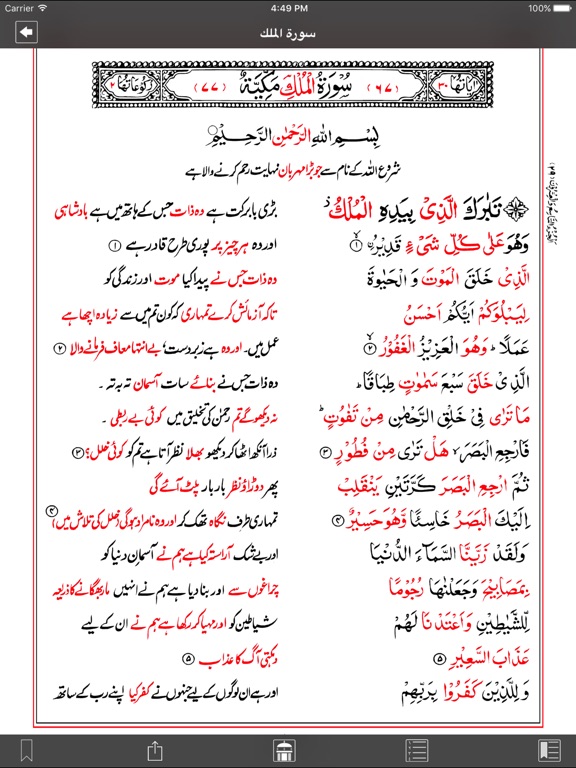 Carrier 4:49 PM 100%
سورة الملك
اٰیَاتُهَا ۳۰ (۶۷) سُوْرَةُ الْمُلْكِ مَكِّیَّةٌ (۷۷) رُكُوْعَاتُهَا ۲
بِسْمِ اللهِ الرَّحْمٰنِ الرَّحِيْمِ
شروع اللہ کے نام سے جو بڑا مہربان نہایت رحم کرنے والا ہے
تَبٰرَكَ الَّذِیْ بِیَدِهِ الْمُلْكُ ز بڑی بابرکت ہے وہ ذات جس کے ہاتھ میں ہے بادشاہی
وَهُوَ عَلٰی كُلِّ شَیْءٍ قَدِیْرُ ۙ ۱ اور وہ ہر چیز پر پوری طرح قادر ہے ۱
الَّذِیْ خَلَقَ الْمَوْتَ وَ الْحَیٰوةَ وہ ذات جس نے پیدا کیا موت اور زندگی کو
لِیَبْلُوَكُمْ اَیُّكُمْ اَحْسَنُ تاکہ آزمائش کرے تمہاری کہ کون تم میں سے زیادہ اچھا ہے
عَمَلًا ؕ وَهُوَ الْعَزِیْزُ الْغَفُوْرُ ۙ ۲ عمل میں۔ اور وہ ہے زبردست، بے انتہا معاف فرمانے والا ۲
الَّذِیْ خَلَقَ سَبْعَ سَمٰوٰتٍ طِبَاقًا ؕ وہ ذات جس نے بنائے سات آسمان تہ بہ تہ ۔
مَا تَرٰی فِیْ خَلْقِ الرَّحْمٰنِ مِنْ تَفٰوُتٍ ؕ نہ دیکھو گے تم رحمٰن کی تخلیق میں کوئی بے ربطی ۔
فَارْجِعِ الْبَصَرَ ۙ هَلْ تَرٰی مِنْ فُطُوْرٍ ۳ ذرا آنکھ اٹھا کر دیکھو بھلا نظر آتا ہے تم کو کوئی خلل؟ ۳
ثُمَّ ارْجِعِ الْبَصَرَ كَرَّتَیْنِ یَنْقَلِبْ پھر دوڑاؤ نظر بار بار پلٹ آئے گی
اِلَیْكَ الْبَصَرُ خَاسِئًا وَّهُوَ حَسِیْرٌ ۴ تمہاری طرف نگاہ تھک کر اور وہ نامراد ہوگی (خلل کی تلاش میں) ۴
وَلَقَدْ زَیَّنَّا السَّمَآءَ الدُّنْیَا اور بے شک آراستہ کیا ہے ہم نے آسمانِ دنیا کو
بِمَصَابِیْحَ وَجَعَلْنٰهَا رُجُوْمًا چراغوں سے اور بنا دیا ہے ہم نے انہیں مار بھگانے کا ذریعہ
لِّلشَّیٰطِیْنِ وَاَعْتَدْنَا لَهُمْ شیاطین کو اور مہیا کر رکھا ہے ہم نے ان کے لیے
عَذَابَ السَّعِیْرِ ۵ دہکتی آگ کا عذاب ۵
وَلِلَّذِیْنَ كَفَرُوْا بِرَبِّهِمْ اور ہے ان لوگوں کے لیے جنہوں نے کفر کیا اپنے رب کے ساتھ